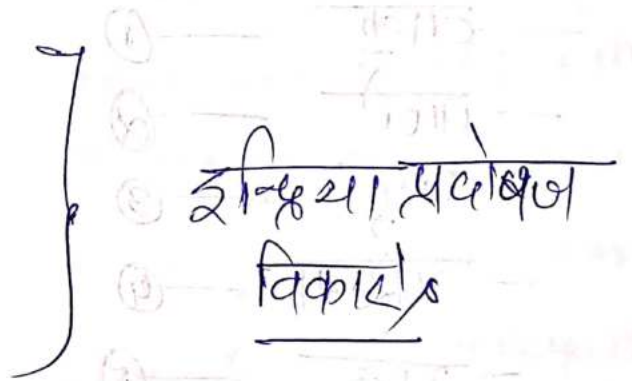 इन्द्रिया प्रदोषज
विकार